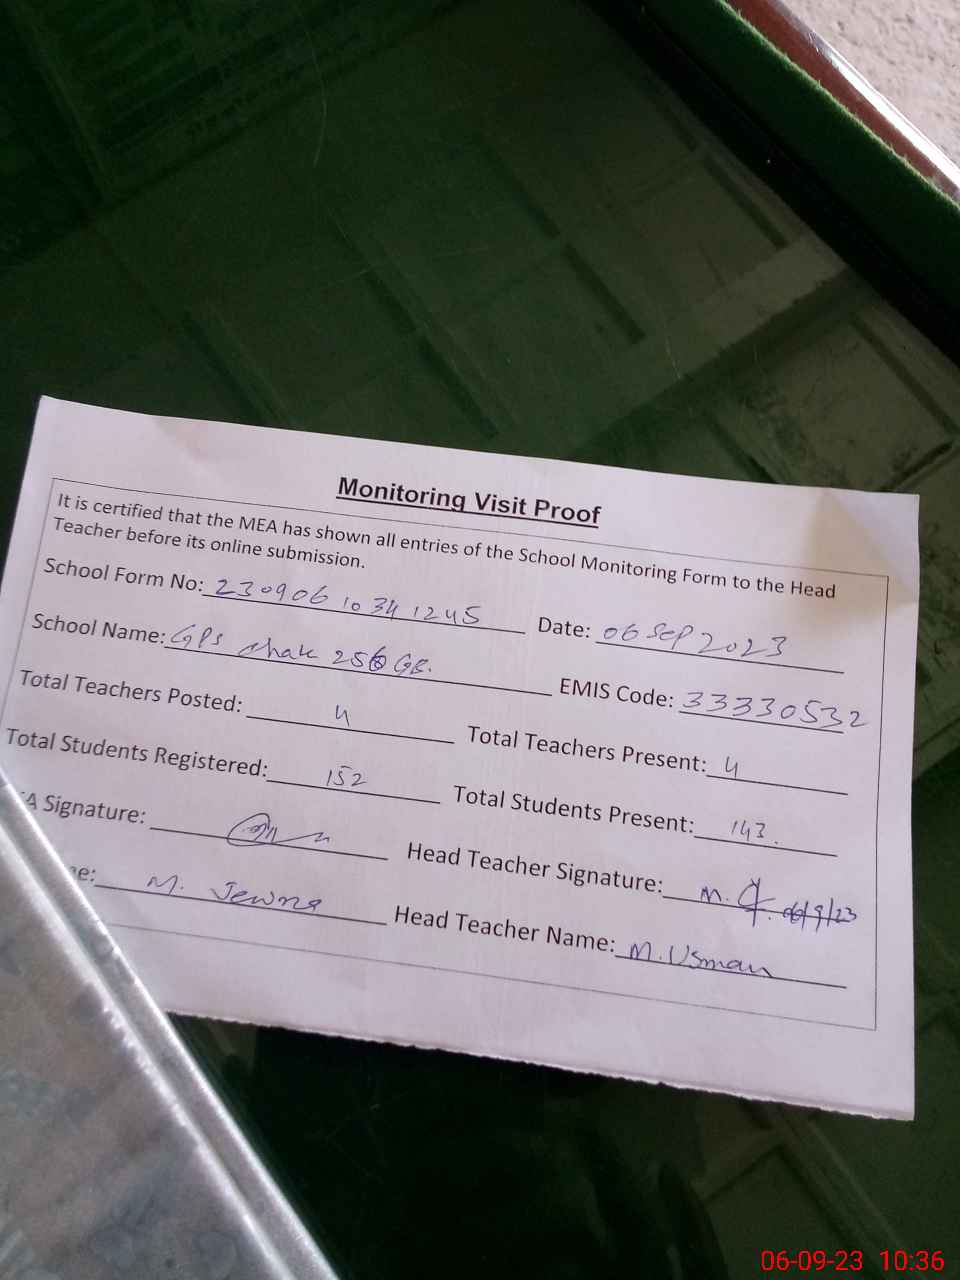 Monitoring Visit Proof
It is certified that the MEA has shown all entries of the School Monitoring Form to the Head
Teacher before its online submission.
School Form No: 230906 10 34 1245 Date: 06 Sep 2023
School Name: GPS chak 256 GB. EMIS Code: 33330532
Total Teachers Posted: 4 Total Teachers Present: 4
Total Students Registered: 152 Total Students Present: 143.
A Signature: Head Teacher Signature: M. 06/9/23
e: M. Head Teacher Name: M. Usman
06-09-23 10:36